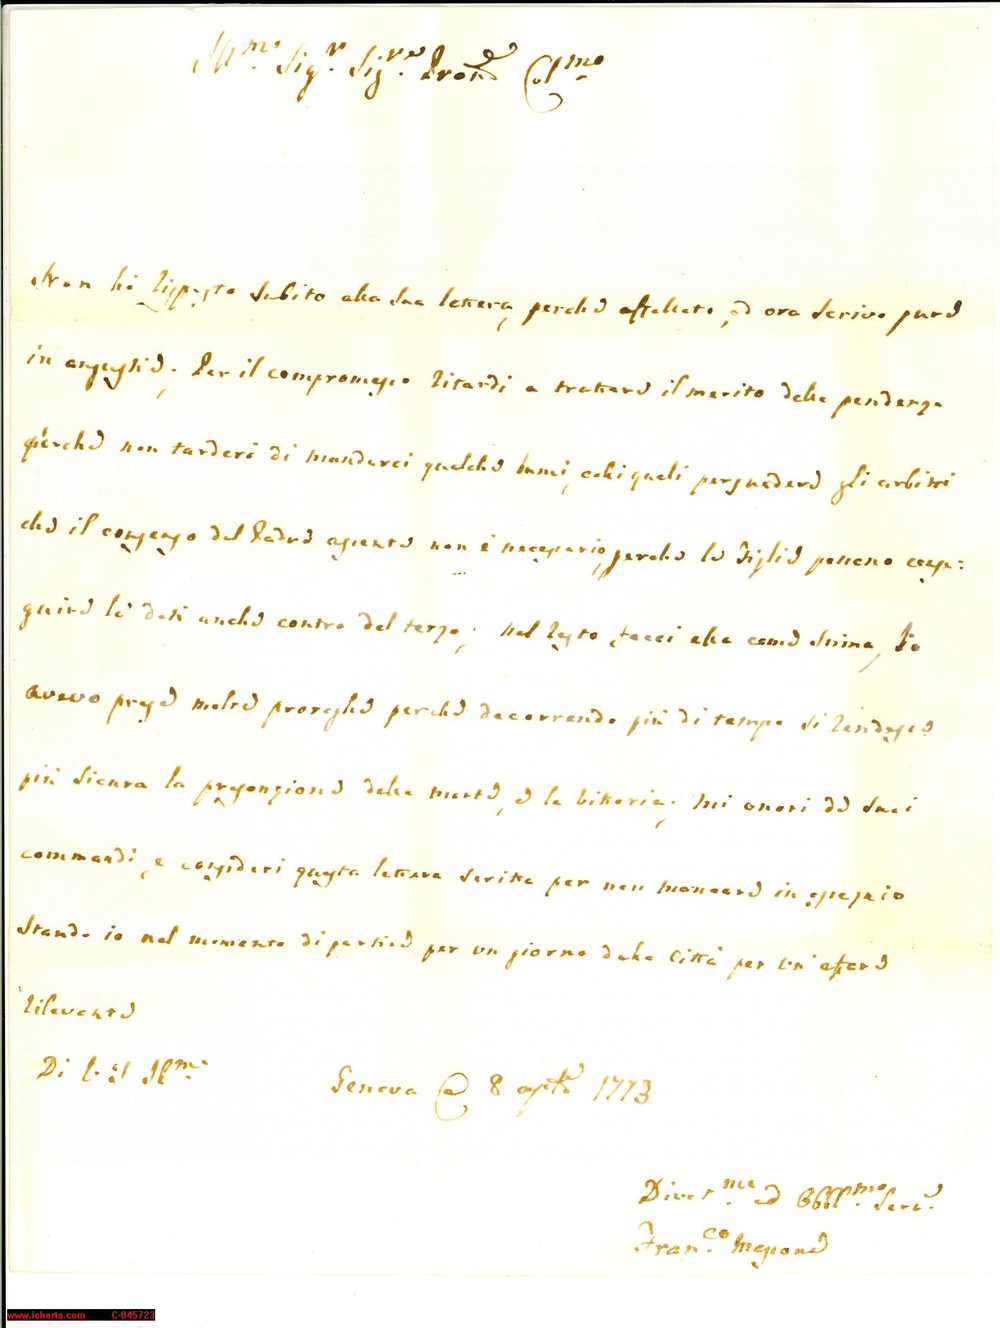 Ill.mo Sig.r Sig.re Pron.e Col.mo
Non hò risposto subito alla sua lettera, perche affollato, ed ora scrivo pure
in angustie. Per il compromesso ritardi a trattare il merito della pendenza
perche non tarderò di mandarci qualche lumi, colli quali persuadere gli arbitri
che il consenso del Padre assente non è necessario, perche le Figlie possono conse=
guire le doti anche contro del terzo; nel resto facci ella come stima, Io
avevo prese molte proroghe perche decorrendo più di tempo si rendesse
più sicura la presonzione della morte, e la vittoria; mi onori de suoi
commandi, e consideri questa lettera scritta per non mancare in ossequio
stando io nel momento di partire per un giorno dalla Città per un' affare
rilevante
Di V. S. Ill.ma
Genova @ 8 agosto 1773
Divot.mo ed Obbl.mo Serv.e
Fran.co Massone
www.icharta.com C-045723